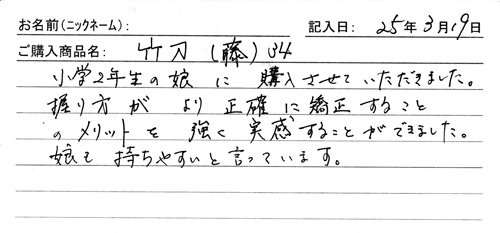 お名前(ニックネーム): 記入日: 25年 3月 19日
ご購入商品名: 竹刀(藤)34
小学2年生の娘に購入させていただきました。
握り方がより正確に矯正すること
のメリットを強く実感することができました。
娘も持ちやすいと言っています。